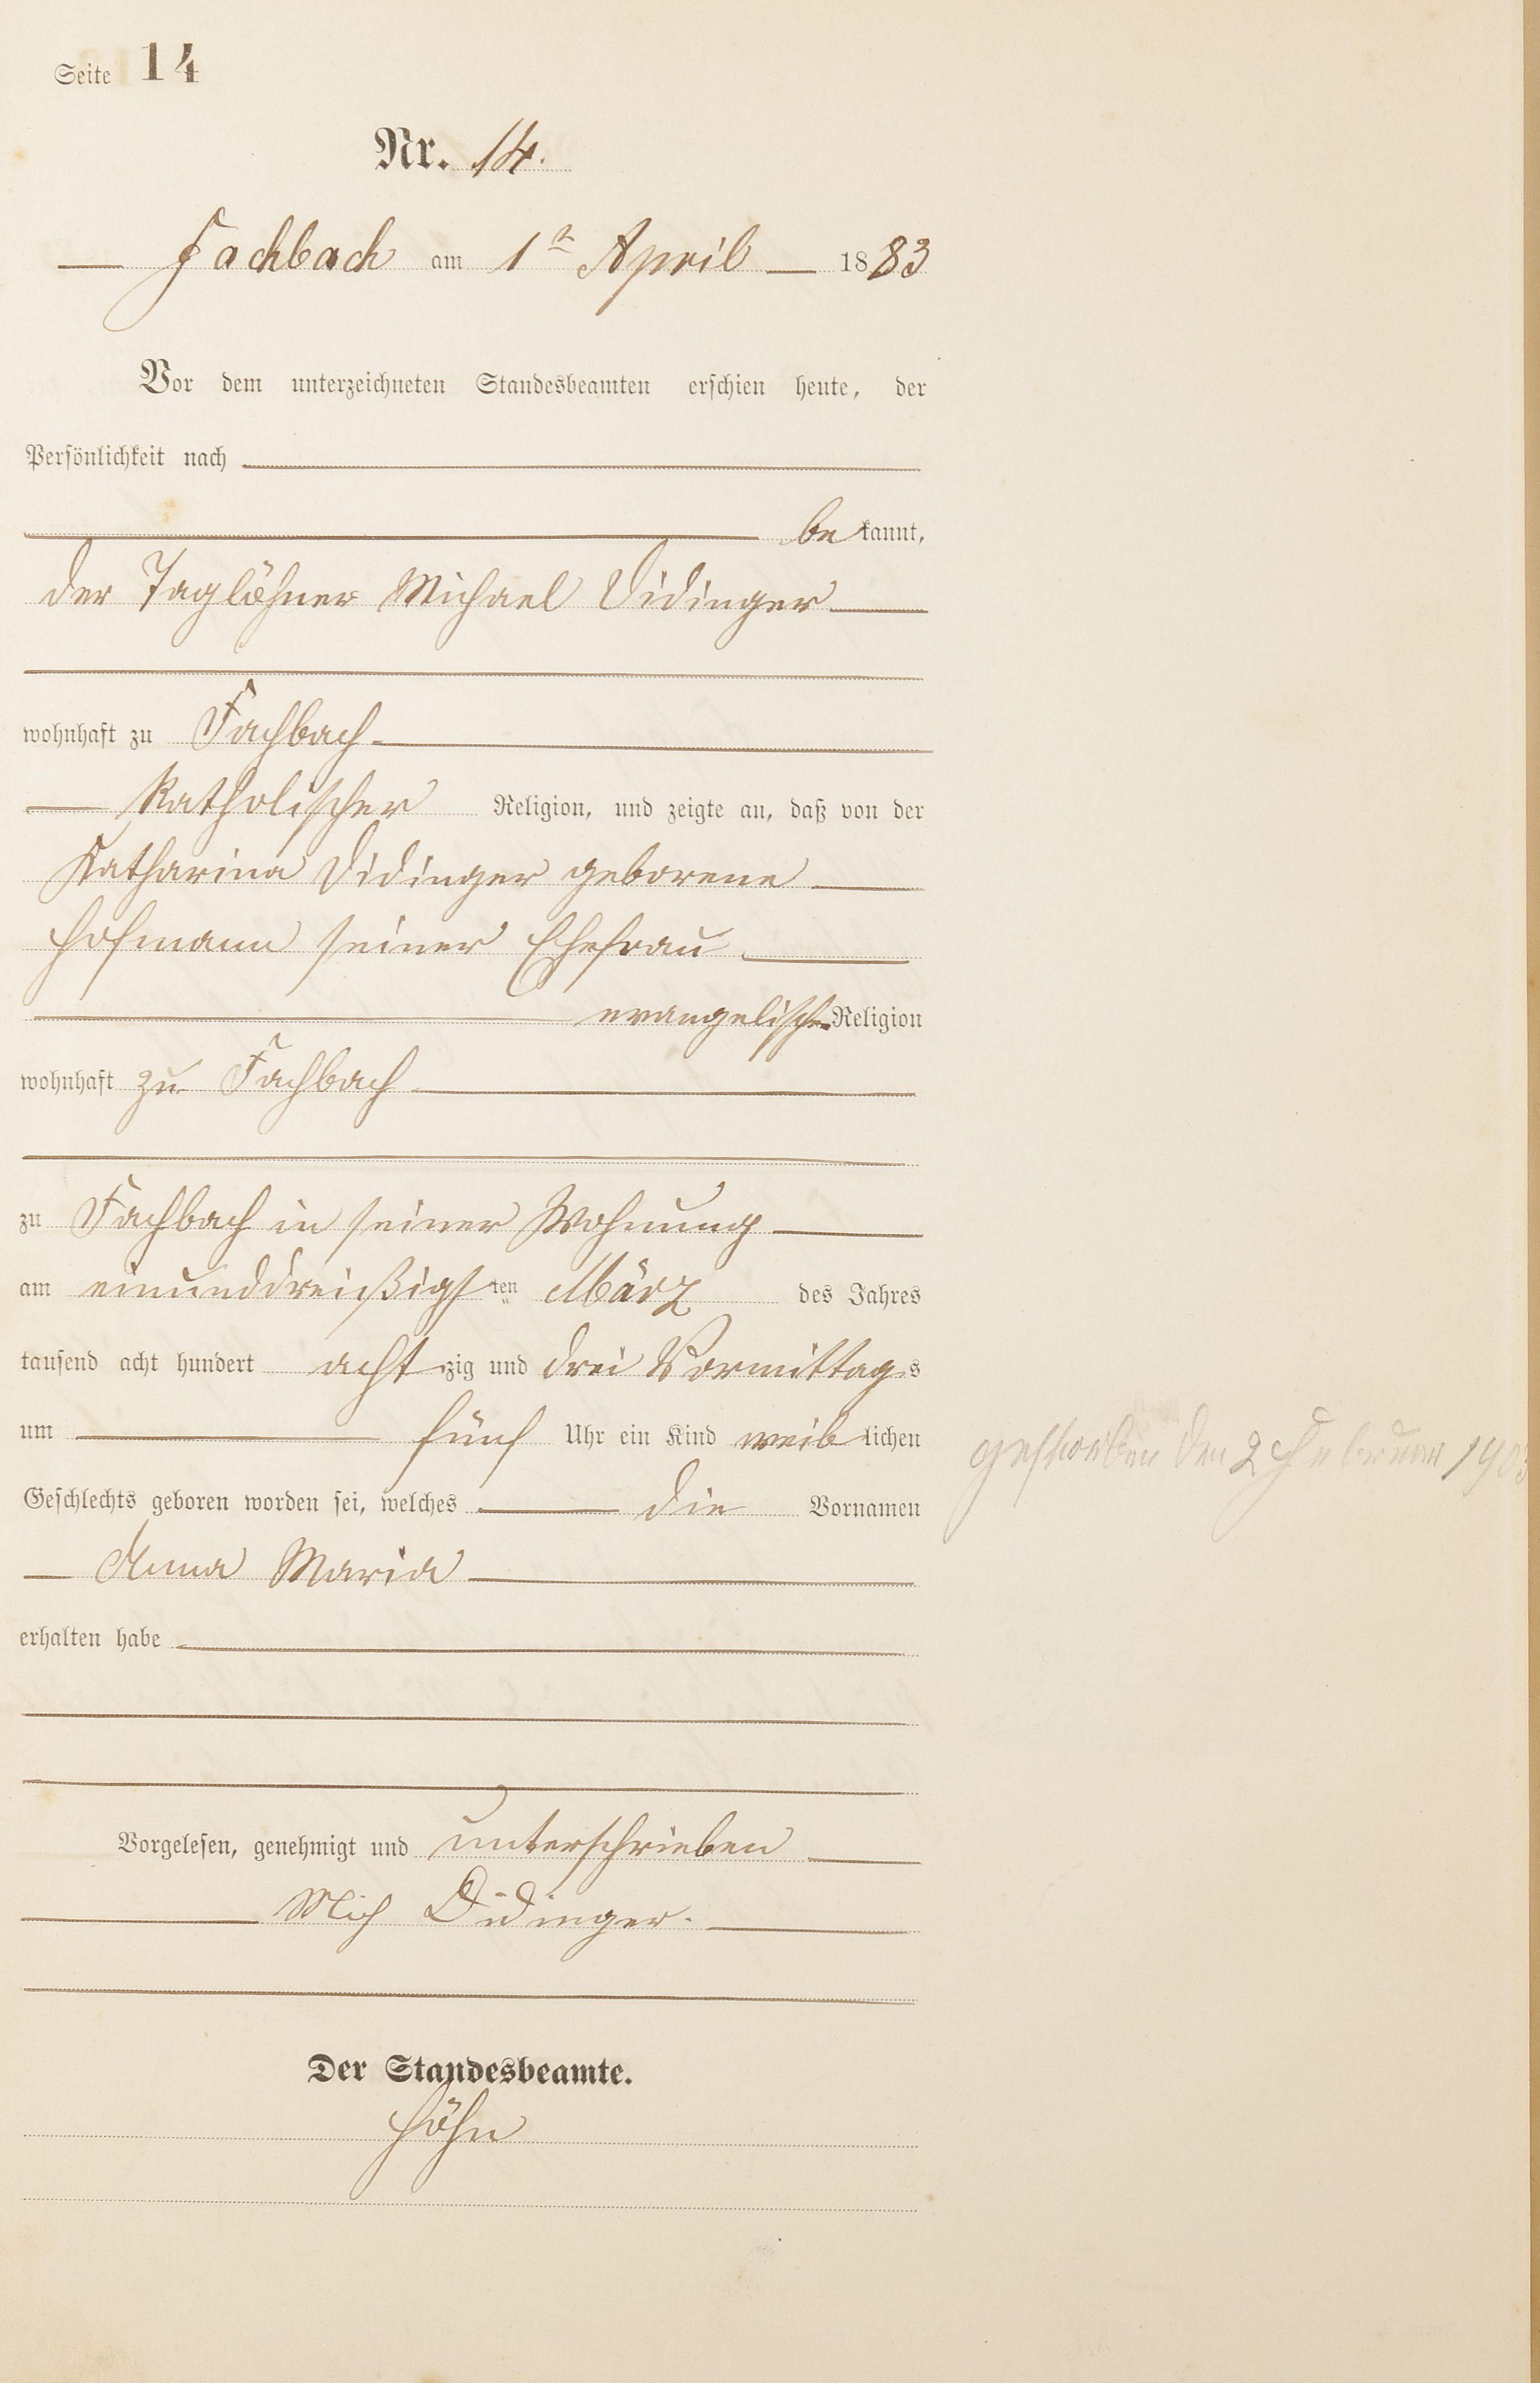 Seite 14
Nr. 14.
Fachbach am 1ᵗ April 1883
Vor dem unterzeichneten Standesbeamten erschien heute, der
Persönlichkeit nach
bekannt,
der Taglöhner Michael Didinger
wohnhaft zu Fachbach
Katholischer Religion, und zeigte an, daß von der
Katharina Didinger geborene
Hofmann seiner Ehefrau
evangelischer Religion
wohnhaft zu Fachbach
zu Fachbach in seiner Wohnung
am einunddreißigsten März des Jahres
tausend acht hundert achtzig und drei Vormittags
um fünf Uhr ein Kind weiblichen
Geschlechts geboren worden sei, welches die Vornamen
Anna Maria
erhalten habe
gestorben den 2 Februar 1903
Vorgelesen, genehmigt und unterschrieben
Mich Didinger.
Der Standesbeamte.
Höhn